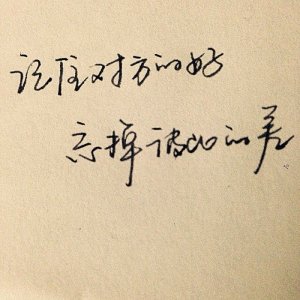 记住对方的好
忘掉彼此的差